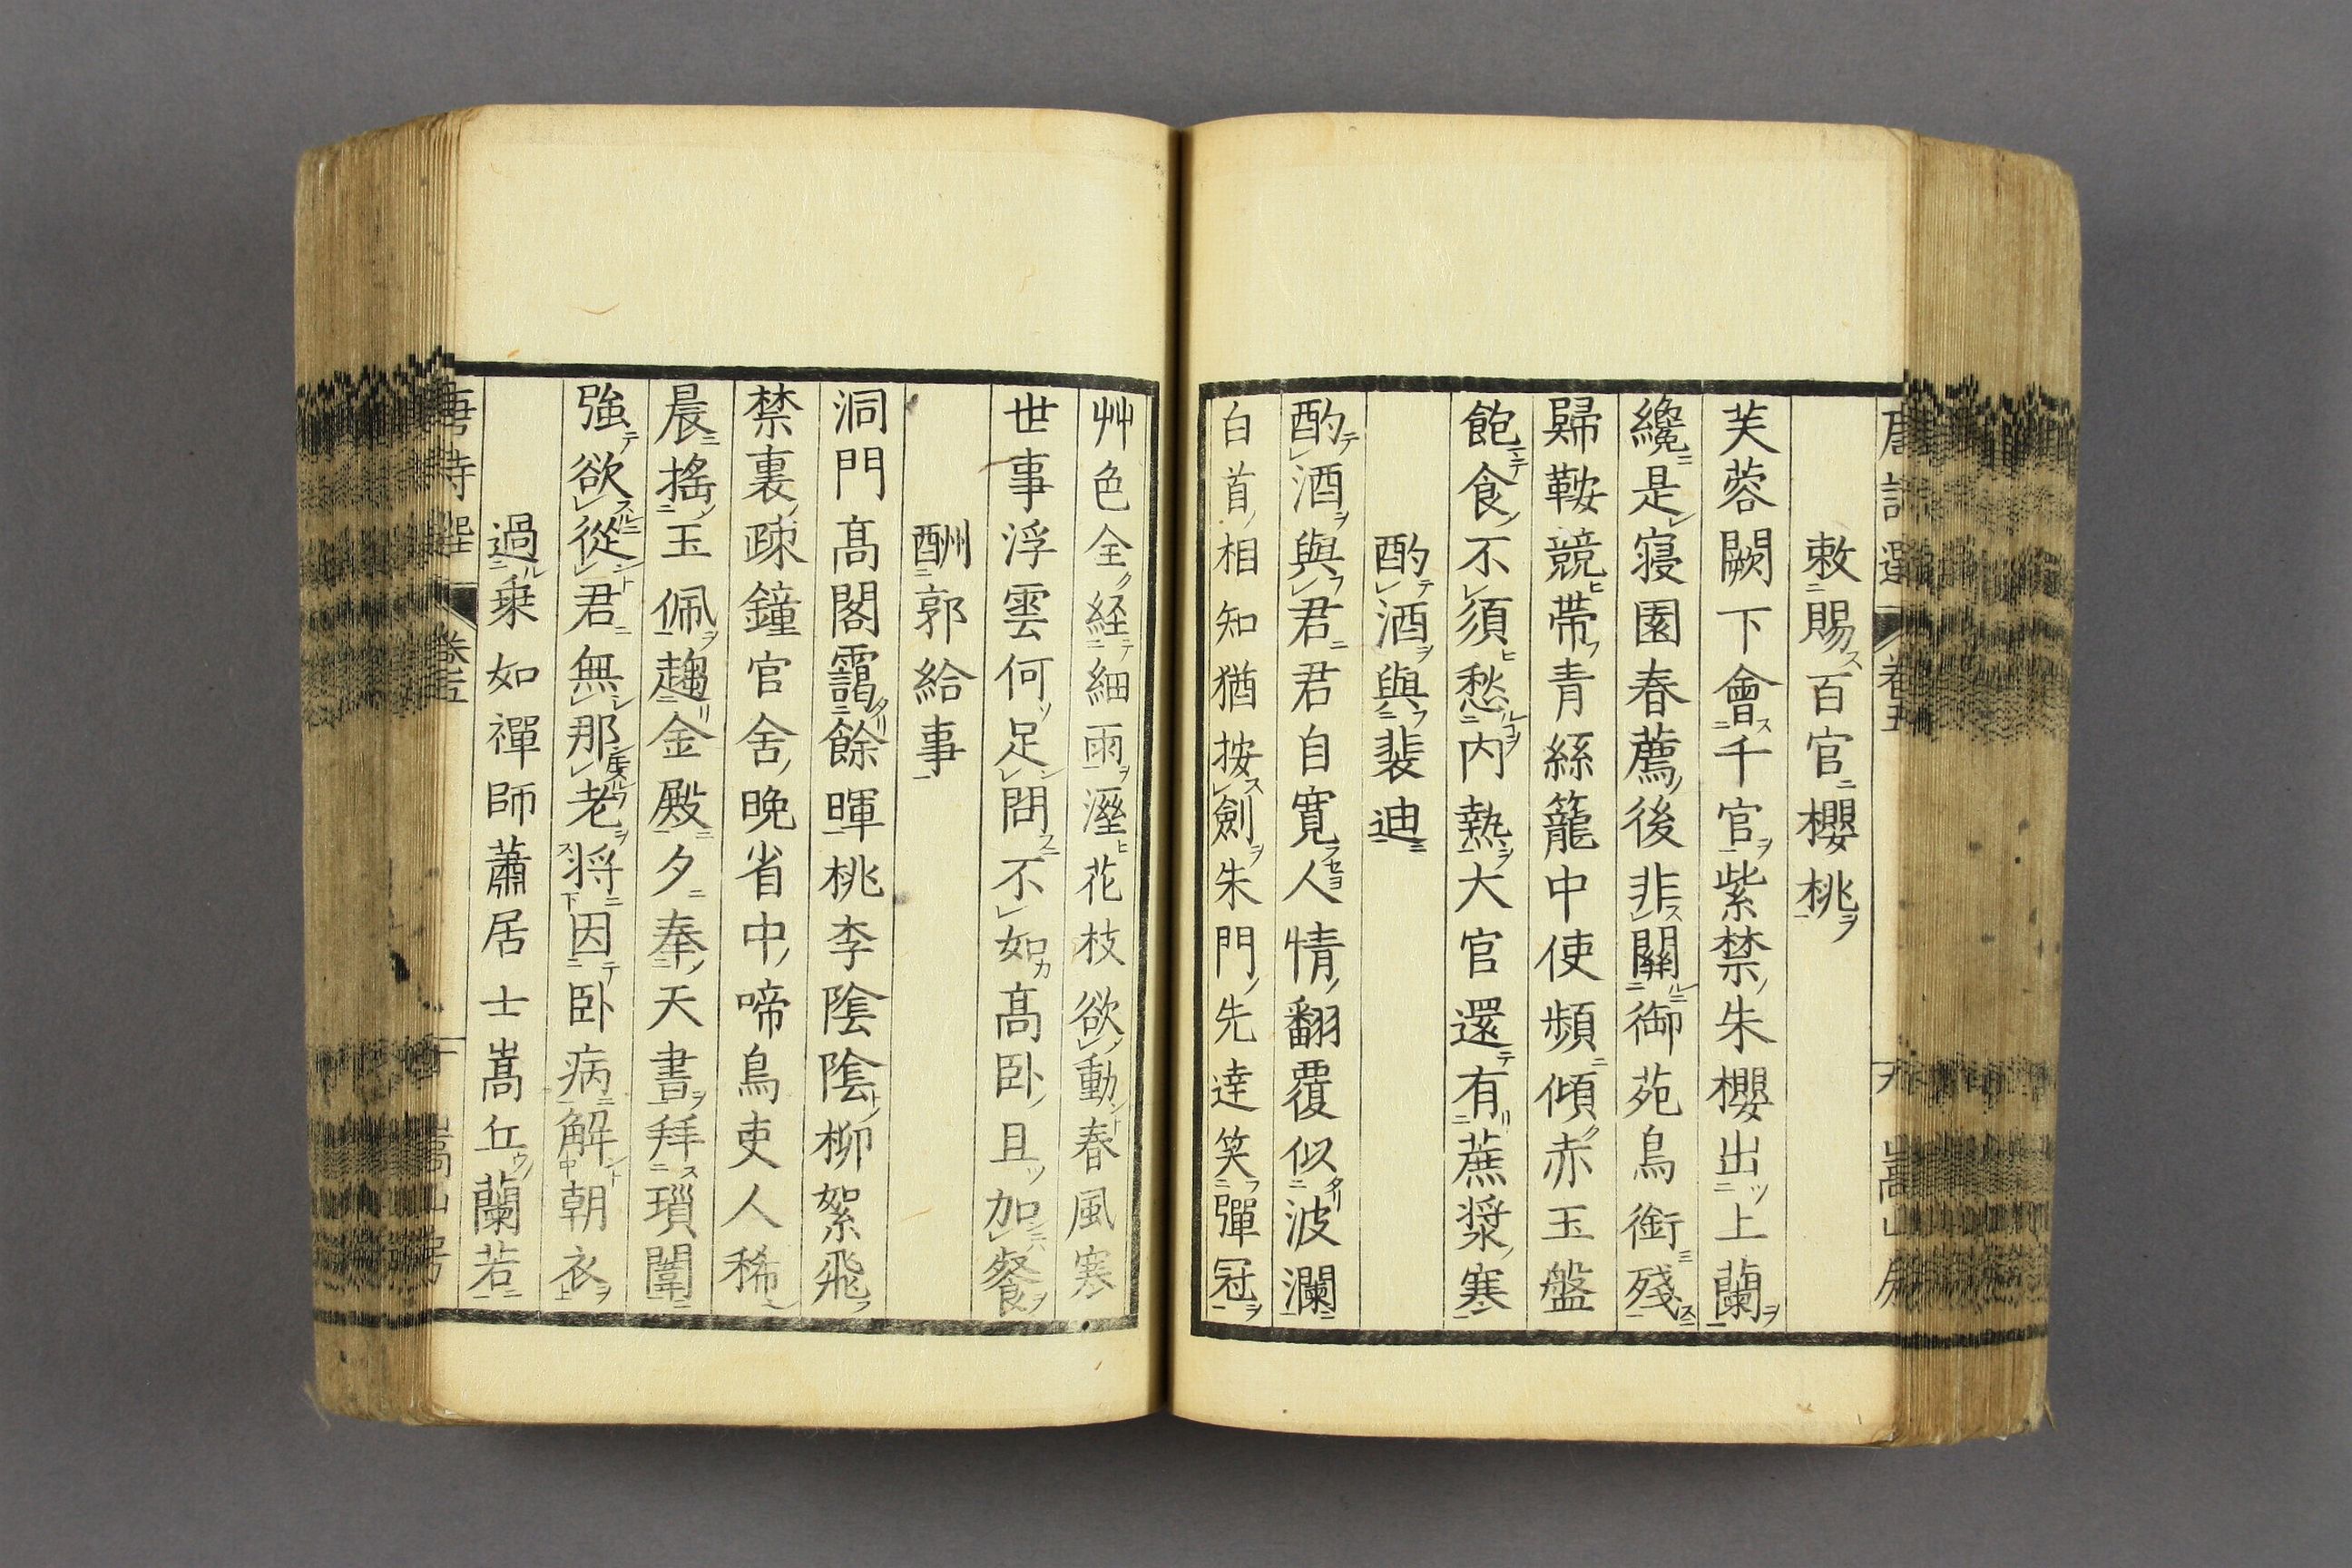 敕賜百官櫻桃
芙蓉闕下會千官紫禁朱櫻出上蘭
纔是寝園春薦後非關御苑鳥銜殘
歸鞍競帶青絲籠中使頻傾赤玉盤
飽食不須愁內熱大官還有蔗漿寒
酌酒與裴迪
酌酒與君君自寬人情翻覆似波瀾
白首相知猶按劍朱門先達笑彈冠
艸色全経細雨溼花枝欲動春風寒
世事浮雲何足問不如髙卧且加餐
酬郭給事
洞門髙閣靄餘暉桃李陰陰柳絮飛
禁裏疎鐘官舍晚省中啼鳥吏人稀
晨搖玉佩趨金殿夕奉天書拜瑣闈
強欲從君無那老将因卧病解朝衣
過乗如禪師蕭居士嵩丘蘭若